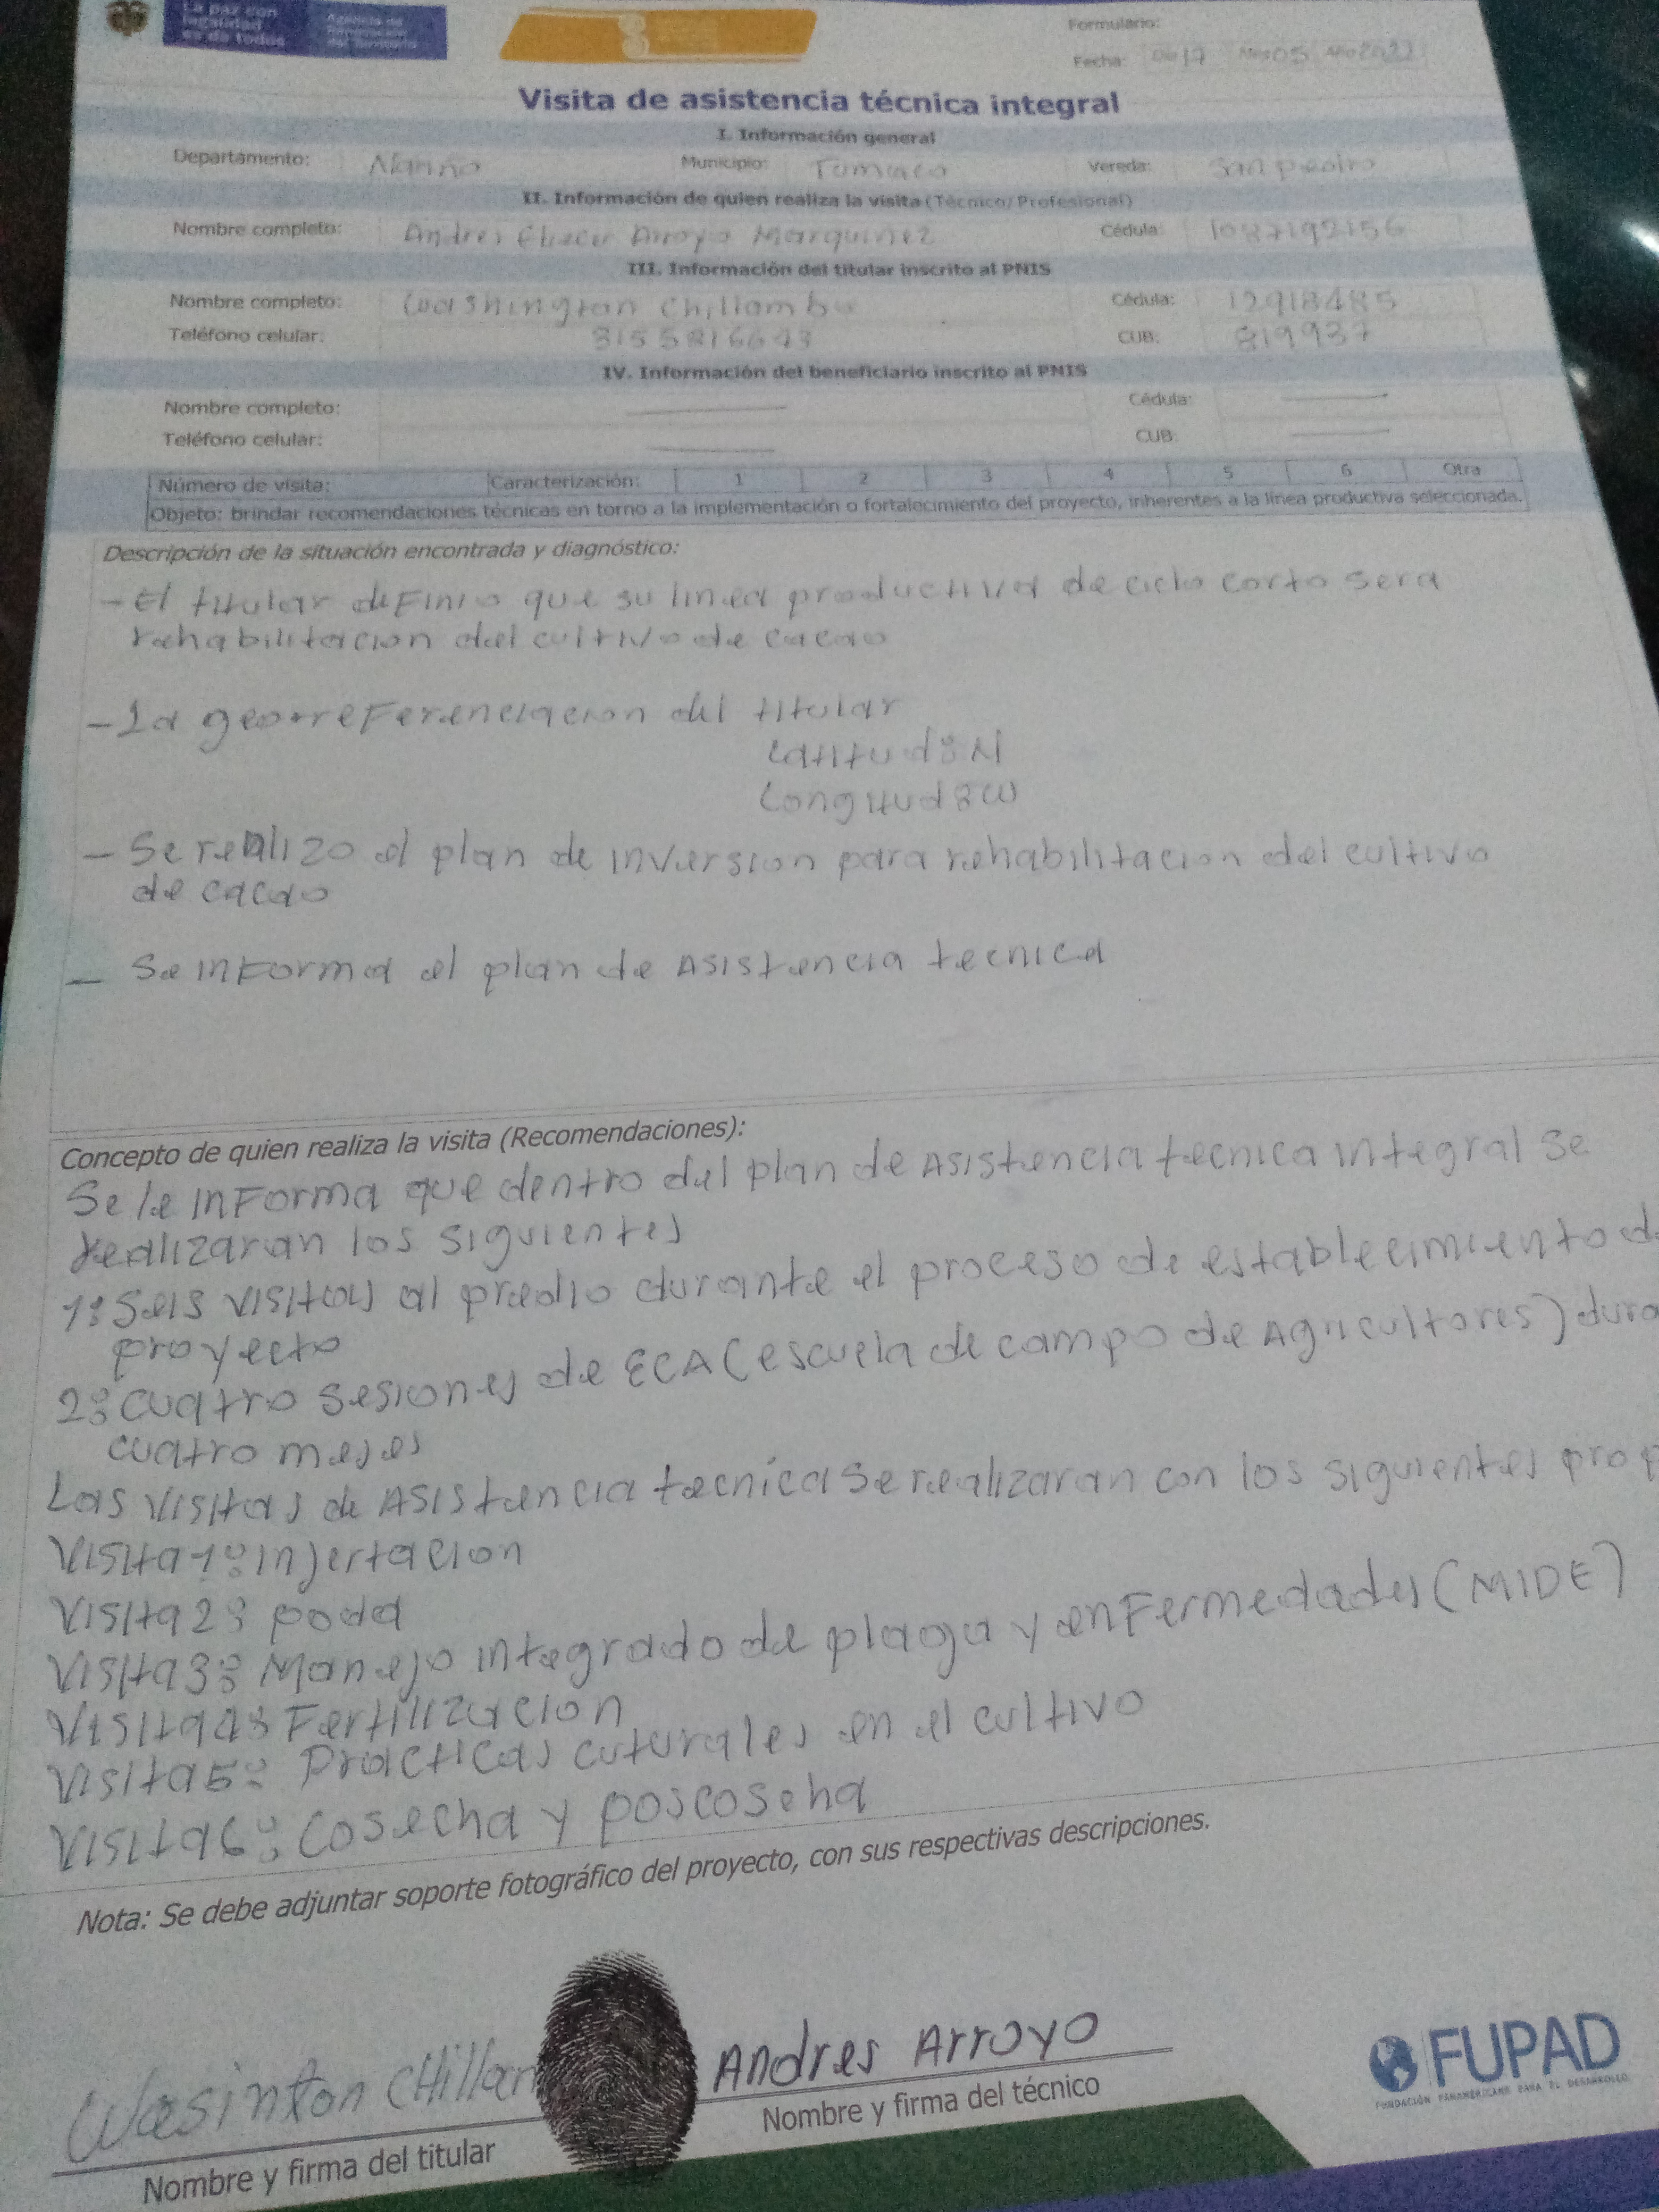 La paz con
legalidad
es de todos
Agencia de
Renovación
del Territorio
Formulario:
Fecha: Día 17 Mes 05 Año 2021
Visita de asistencia técnica integral
I. Información general
Departamento: Nariño Municipio: Tumaco Vereda: San pedro
II. Información de quien realiza la visita (Técnico/Profesional)
Nombre completo: Andres Eliecer Arroyo Marquinez Cédula: 1087192156
III. Información del titular inscrito al PNIS
Nombre completo: Washington Chillambo Cédula: 12918485
Teléfono celular: 3155816643 CUB: 819937
IV. Información del beneficiario inscrito al PNIS
Nombre completo: Cédula:
Teléfono celular: CUB:
Número de visita: Caracterización: 1 2 3 4 5 6 Otra
Objeto: brindar recomendaciones técnicas en torno a la implementación o fortalecimiento del proyecto, inherentes a la línea productiva seleccionada.
Descripción de la situación encontrada y diagnóstico:
- El titular definio que su linea productiva de ciclo corto sera
rehabilitacion del cultivo de cacao
- La georreferenciacion del titular
Latitud: N
Longitud: W
- Se realizo el plan de inversion para rehabilitacion del cultivo
de cacao
- Se informa el plan de Asistencia tecnica
Concepto de quien realiza la visita (Recomendaciones):
Se le informa que dentro del plan de Asistencia tecnica integral se
realizaran los siguientes
1: Seis visitas al predio durante el proceso de establecimiento d
proyecto
2: Cuatro sesiones de ECA (escuela de campo de Agricultores) dura
cuatro meses
Las visitas de Asistencia tecnica se realizaran con los siguientes prop
Visita 1: injertacion
Visita 2: poda
Visita 3: Manejo integrado de plaga y enfermedades (MIDE)
Visita 4: Fertilizacion
Visita 5: Practicas cuturales en el cultivo
Visita 6: Cosecha y poscoseha
Nota: Se debe adjuntar soporte fotográfico del proyecto, con sus respectivas descripciones.
Wasinton CHillan
Andres Arroyo
Nombre y firma del titular
Nombre y firma del técnico
FUPAD
FUNDACIÓN PANAMERICANA PARA EL DESARROLLO